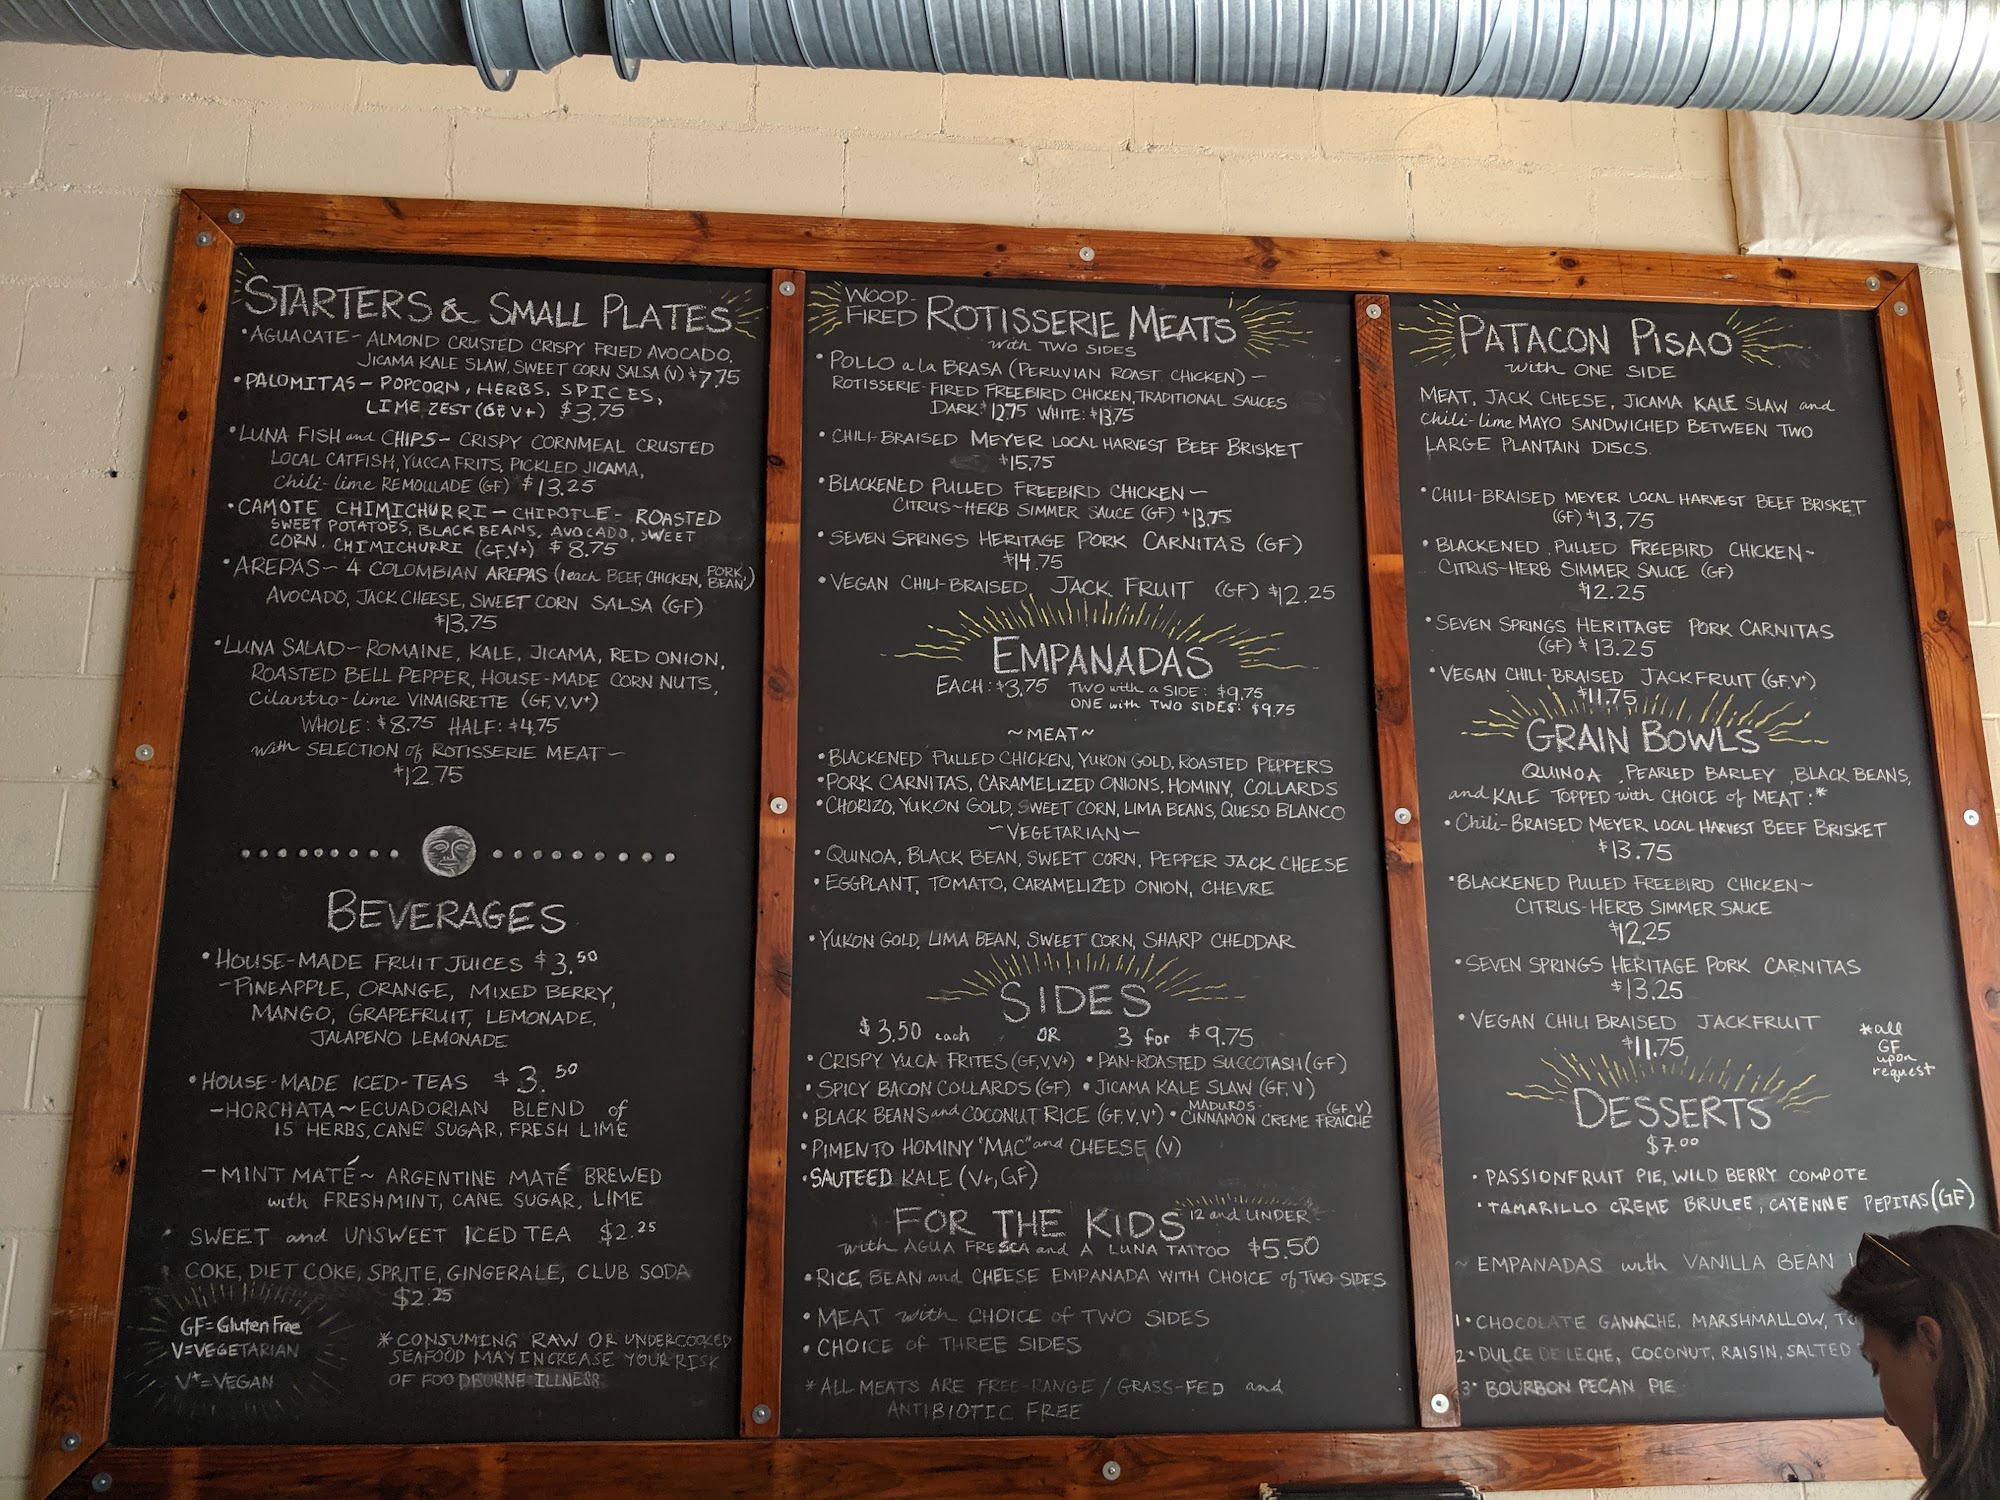 STARTERS & SMALL PLATES
•AGUACATE- ALMOND CRUSTED CRISPY FRIED AVOCADO,
JICAMA KALE SLAW, SWEET CORN SALSA (V) $7.75
•PALOMITAS- POPCORN, HERBS, SPICES,
LIME ZEST (GF V+) $3.75
•LUNA FISH and CHIPS- CRISPY CORNMEAL CRUSTED
LOCAL CATFISH, YUCCA FRITS, PICKLED JICAMA,
Chili-lime REMOULADE (GF) $13.25
•CAMOTE CHIMICHURRI- CHIPOTLE-ROASTED
SWEET POTATOES, BLACK BEANS, AVOCADO, SWEET
CORN, CHIMICHURRI (GF,V+) $8.75
•AREPAS~ 4 COLOMBIAN AREPAS (1each BEEF, CHICKEN, PORK, BEAN)
AVOCADO, JACK CHEESE, SWEET CORN SALSA (GF)
$13.75
•LUNA SALAD~ ROMAINE, KALE, JICAMA, RED ONION,
ROASTED BELL PEPPER, HOUSE-MADE CORN NUTS,
Cilantro-lime VINAIGRETTE (GF, V, V+)
WHOLE: $8.75 HALF: $4.75
with SELECTION of ROTISSERIE MEAT~
$12.75
BEVERAGES
•HOUSE-MADE FRUIT JUICES $3.50
-PINEAPPLE, ORANGE, MIXED BERRY,
MANGO, GRAPEFRUIT, LEMONADE,
JALAPENO LEMONADE
•HOUSE-MADE ICED-TEAS $3.50
-HORCHATA~ECUADORIAN BLEND of
15 HERBS, CANE SUGAR, FRESH LIME
-MINT MATÉ~ ARGENTINE MATÉ BREWED
with FRESHMINT, CANE SUGAR, LIME
• SWEET and UNSWEET ICED TEA $2.25
• COKE, DIET COKE, SPRITE, GINGERALE, CLUB SODA
$2.25
GF=Gluten Free
V=VEGETARIAN
V+=VEGAN
*CONSUMING RAW OR UNDERCOOKED
SEAFOOD MAY INCREASE YOUR RISK
OF FOODBORNE ILLNESS
WOOD-FIRED ROTISSERIE MEATS
with TWO SIDES
•POLLO a la BRASA (PERUVIAN ROAST CHICKEN)—
ROTISSERIE-FIRED FREEBIRD CHICKEN, TRADITIONAL SAUCES
DARK: $12.75 WHITE: $13.75
•CHILI-BRAISED MEYER LOCAL HARVEST BEEF BRISKET
$15.75
•BLACKENED PULLED FREEBIRD CHICKEN~
CITRUS~HERB SIMMER SAUCE (GF) $13.75
•SEVEN SPRINGS HERITAGE PORK CARNITAS (GF)
$14.75
•VEGAN CHILI-BRAISED JACK FRUIT (GF) $12.25
EMPANADAS
EACH: $3.75 TWO with a SIDE: $9.75
ONE with TWO SIDES: $9.75
~MEAT~
•BLACKENED PULLED CHICKEN, YUKON GOLD, ROASTED PEPPERS
•PORK CARNITAS, CARAMELIZED ONIONS, HOMINY, COLLARDS
•CHORIZO, YUKON GOLD, SWEET CORN, LIMA BEANS, QUESO BLANCO
~VEGETARIAN~
•QUINOA, BLACK BEAN, SWEET CORN, PEPPER JACK CHEESE
•EGGPLANT, TOMATO, CARAMELIZED ONION, CHEVRE
•YUKON GOLD, LIMA BEAN, SWEET CORN, SHARP CHEDDAR
SIDES
$3.50 each OR 3 for $9.75
•CRISPY YUCA FRITES (GF,V,V+) •PAN-ROASTED SUCCOTASH (GF)
•SPICY BACON COLLARDS (GF) •JICAMA KALE SLAW (GF, V)
•BLACK BEANS and COCONUT RICE (GF, V, V+) •MADUROS- CINNAMON CREME FRAICHE (GF, V)
•PIMENTO HOMINY "MAC" and CHEESE (V)
•SAUTEED KALE (V+, GF)
FOR THE KIDS 12 and UNDER
with AGUA FRESCA and A LUNA TATTOO $5.50
•RICE, BEAN and CHEESE EMPANADA WITH CHOICE of TWO SIDES
•MEAT with CHOICE of TWO SIDES
•CHOICE OF THREE SIDES
*ALL MEATS ARE FREE-RANGE / GRASS-FED and
ANTIBIOTIC FREE
PATACON PISAO
with ONE SIDE
MEAT, JACK CHEESE, JICAMA KALE SLAW and
Chili-lime MAYO SANDWICHED BETWEEN TWO
LARGE PLANTAIN DISCS.
•CHILI-BRAISED MEYER LOCAL HARVEST BEEF BRISKET
(GF) $13.75
•BLACKENED PULLED FREEBIRD CHICKEN~
CITRUS-HERB SIMMER SAUCE (GF)
$12.25
•SEVEN SPRINGS HERITAGE PORK CARNITAS
(GF) $13.25
•VEGAN CHILI-BRAISED JACKFRUIT (GF,V+)
$11.75
GRAIN BOWLS
QUINOA, PEARLED BARLEY, BLACK BEANS,
and KALE TOPPED with CHOICE of MEAT:*
•Chili-BRAISED MEYER LOCAL HARVEST BEEF BRISKET
$13.75
•BLACKENED PULLED FREEBIRD CHICKEN~
CITRUS-HERB SIMMER SAUCE
$12.25
•SEVEN SPRINGS HERITAGE PORK CARNITAS
$13.25
•VEGAN CHILI BRAISED JACKFRUIT
$11.75
*all
GF
upon
request
DESSERTS
$7.00
•PASSIONFRUIT PIE, WILD BERRY COMPOTE
•TAMARILLO CREME BRULEE, CAYENNE PEPITAS (GF)
~ EMPANADAS with VANILLA BEAN
1• CHOCOLATE GANACHE, MARSHMALLOW,
2• DULCE DE LECHE, COCONUT, RAISIN, SALTED
3• BOURBON PECAN PIE